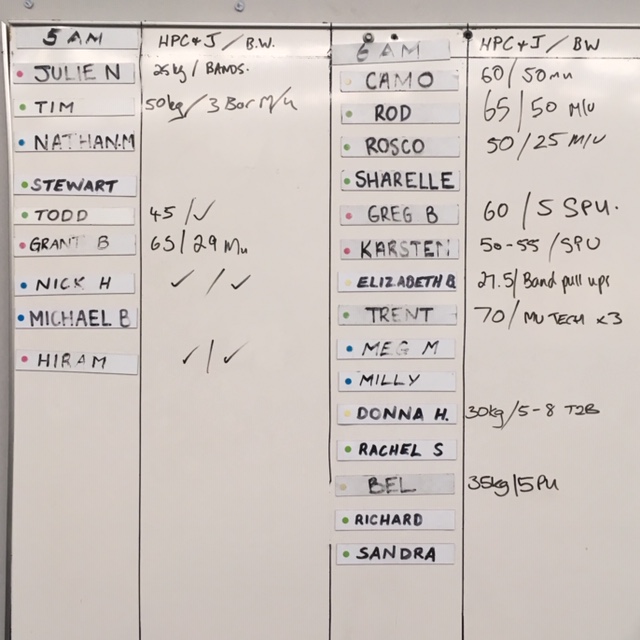 5 AM HPC & J / B.W.
JULIE N 25kg / BANDS.
TIM 50kg / 3 Bar M/u
NATHAN.M
STEWART
TODD 45 / ✓
GRANT B 65 / 29 Mu
NICK H ✓ / ✓
MICHAEL B
HIRAM ✓ / ✓
6 AM HPC & J / BW
CAMO 60 / 50 mu
ROD 65 / 50 M/U
ROSCO 50 / 25 M/U
SHARELLE
GREG B 60 / 5 SPU.
KARSTEN 50-55 / SPU
ELIZABETH B 27.5 / Band pull ups
TRENT 70 / MU TECH x3
MEG M
MILLY
DONNA H. 30kg / 5-8 T2B
RACHEL S
BEL 35kg / 5 PU
RICHARD
SANDRA